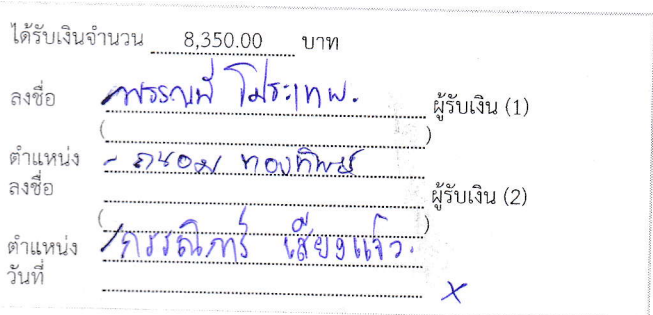 ได้รับเงินจำนวน 8,350.00 บาท
ลงชื่อ พรรณี ผู้รับเงิน (1)
( )
ตำแหน่ง - ถนอม ทองทิพย์
ลงชื่อ ผู้รับเงิน (2)
( )
ตำแหน่ง กรรณิการ์ เสียงแจ้ว
วันที่ X